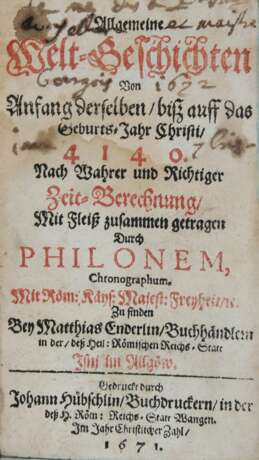 Allgemeine et maistre
Welt-Geschichten
Von 1672
Anfang derselben / biß auff das
Geburts-Jahr Christi /
4140.
Nach Wahrer und Richtiger
Zeit-Berechnung /
Mit Fleiß zusammen getragen
Durch
PHILONEM,
Chronographum.
Mit Röm: Käys: Majest: Freyheit / ꝛc.
Zu finden
Bey Matthias Enderlin / Buchhändlern
in der / deß Heil: Römischen Reichs-Statt
Jßni im Allgöw.
Gedruckt durch
Johann Hübschlin / Buchdruckern / in der
deß H. Röm: Reichs-Statt Wangen.
Im Jahr Christlicher Zahl /
1671.